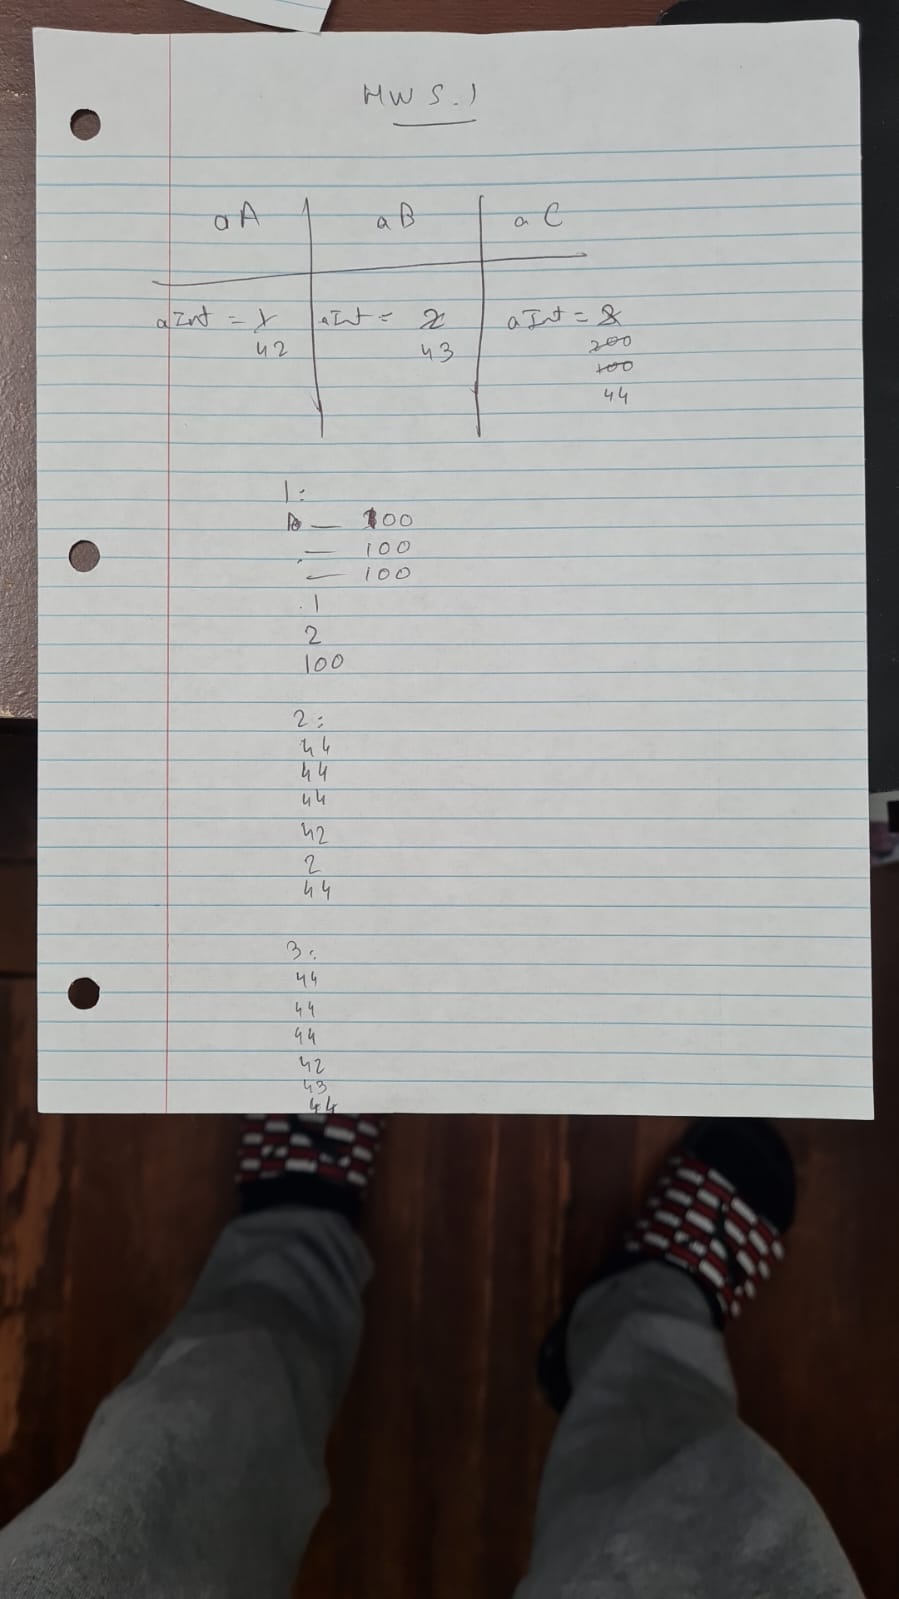 HW 5.1
aA aB aC
aInt = 1 aInt = 2 aInt = 3
42 43 200
100
44
1:
— 100
— 100
— 100
1
2
100
2:
44
44
44
42
2
44
3:
44
44
44
42
43
44